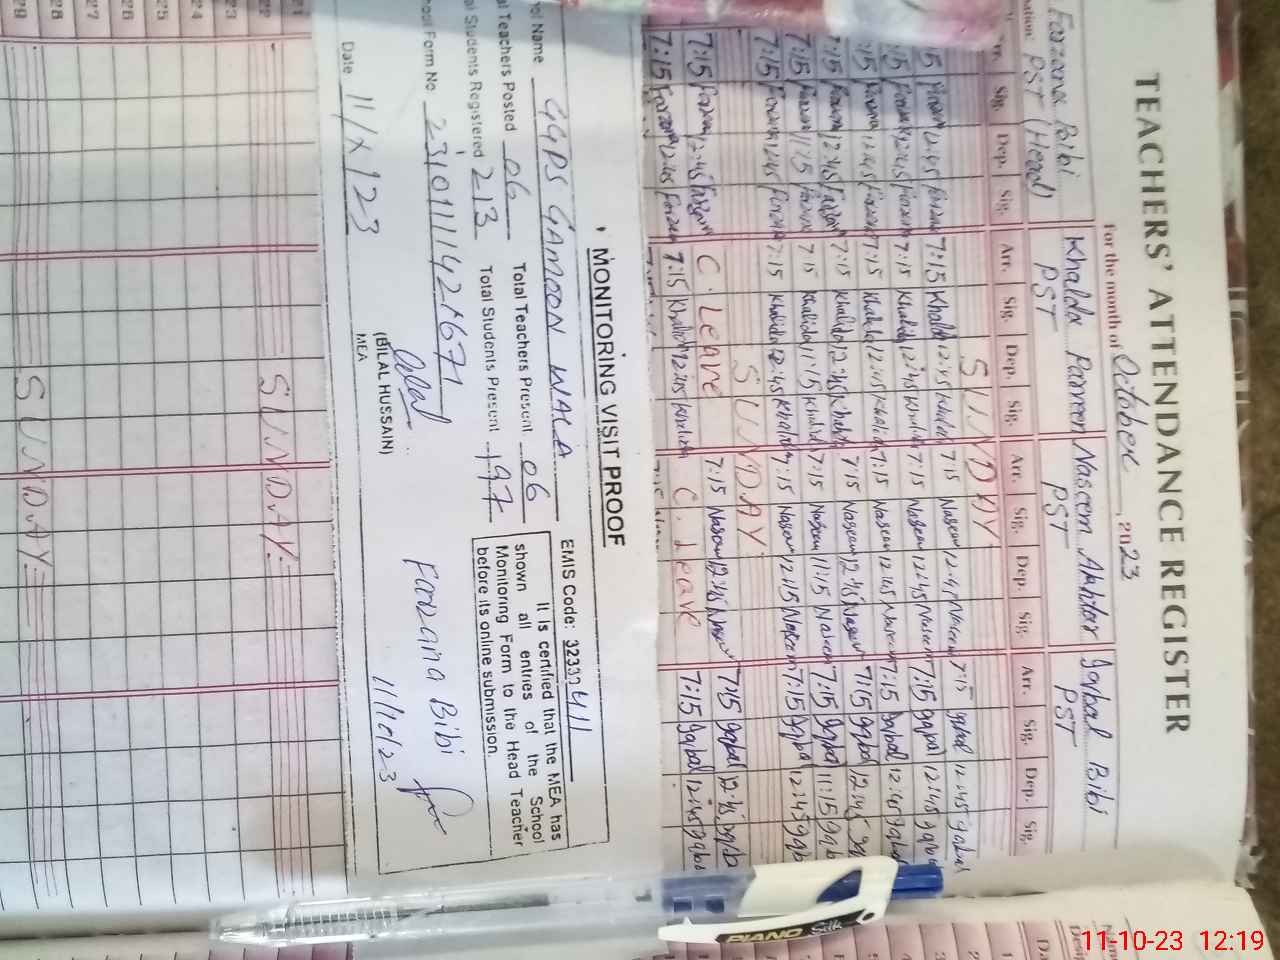 TEACHERS' ATTENDANCE REGISTER
For the month of October, 2023
Farzana Bibi Khalda Parveen Naseem Akhtar Iqbal Bibi
PST (Head) PST PST PST
Arr. Sig. Dep. Sig. Arr. Sig. Dep. Sig. Arr. Sig. Dep. Sig. Arr. Sig. Dep. Sig.
SUNDAY
7:15 Khalida 12:45 Khalida 7:15 Naseem 7:15 Iqbal 12:45 Iqbal
7:15 Khalida 12:45 Khalida 7:15 Naseem 12:45 Naseem 7:15 Iqbal 12:45 Iqbal
7:15 Khalida 12:45 Khalida 7:15 Naseem 12:45 Naseem 7:15 Iqbal 12:45 Iqbal
7:15 Farzana 12:45 Farzana 7:15 Khalida 12:45 Khalida 7:15 Naseem 12:45 Naseem 7:15 Iqbal 12:45
7:15 Farzana 11:15 Farzana 7:15 Khalida 11:15 Khalida 7:15 Naseem 11:15 Naseem 7:15 Iqbal 11:15 Iqb
7:15 Farzana 12:45 Farzana 7:15 Khalida 12:45 Khalida 7:15 Naseem 12:15 Naseem 7:15 Iqbal 12:45 Iqb
SUNDAY
7:15 Farzana 12:45 Farzana C. Leave 7:15 Naseem 12:45 Naseem 7:15 Iqbal 12:45 Iqb
7:15 Farzana 12:45 Farzana 7:15 Khalida 12:45 Khalida C. Leave 7:15 Iqbal 12:45 Iqba
MONITORING VISIT PROOF
Name GGPS GAMOON WALA EMIS Code: 32332411
Teachers Posted 06 Total Teachers Present 06
Students Registered 213 Total Students Present 197
Form No. 231011142671
It is certified that the MEA has
shown all entries of the School
Monitoring Form to the Head Teacher
before its online submission.
Date 11/X/23
Bilal
(BILAL HUSSAIN)
MEA
Farzana Bibi
11/10/23
22 SUNDAY
23
24
25
26
27
28
29 SUNDAY
PIANO Silk
11-10-23 12:19